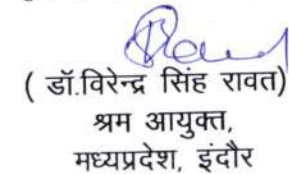 ( डॉ.विरेन्द्र सिंह रावत)
श्रम आयुक्त,
मध्यप्रदेश, इंदौर